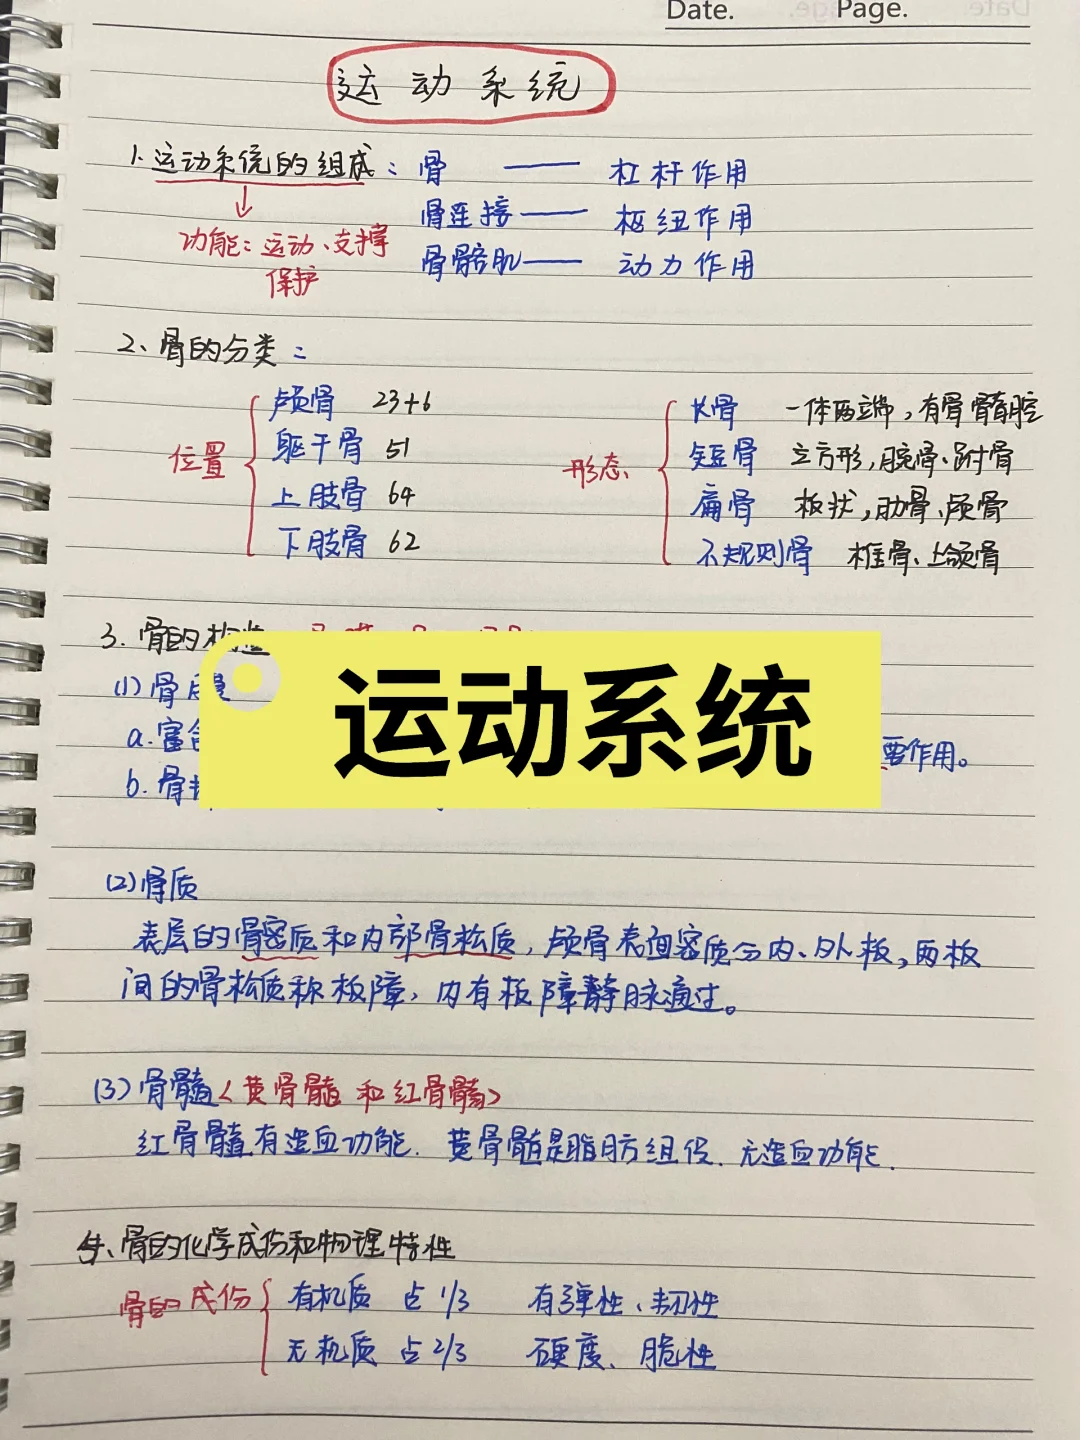 Date.    Page.
运动系统
1. 运动系统的组成：骨 —— 杠杆作用
骨连接 —— 枢纽作用
功能：运动、支撑
保护
骨骼肌 —— 动力作用
2、骨的分类：
位置
颅骨 23+6
躯干骨 51
上肢骨 64
下肢骨 62
形态
长骨 一体两端，有骨髓腔
短骨 立方形，腕骨、跗骨
扁骨 板状，肋骨、颅骨
不规则骨 椎骨、上颌骨
3. 骨的构造
(1) 骨膜
a. 富含
要作用。
b. 骨
运动系统
(2) 骨质
表层的骨密质和内部骨松质，颅骨表面密质分内、外板，两板
间的骨松质称板障，内有板障静脉通过。
(3) 骨髓<黄骨髓和红骨髓>
红骨髓有造血功能. 黄骨髓是脂肪组织. 无造血功能.
4、骨的化学成份和物理特性
骨的成份
有机质 占1/3 有弹性、韧性
无机质 占2/3 硬度、脆性